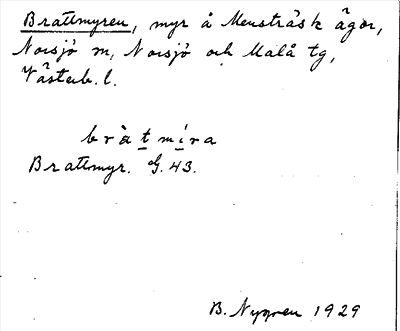 Brattmyren, myr å Mensträsk ägor,
Norsjö sn, Norsjö och Malå tg,
Västerb. l.
bràtmira
Brattmyr. G. 43.
B. Nygren 1929